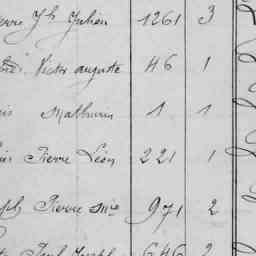 Jh Julien 1261 3
Victor auguste 46 1
Mathurin 1 1
Pierre Léon 221 1
Pierre Mie 971 2
Paul Joseph 646 2